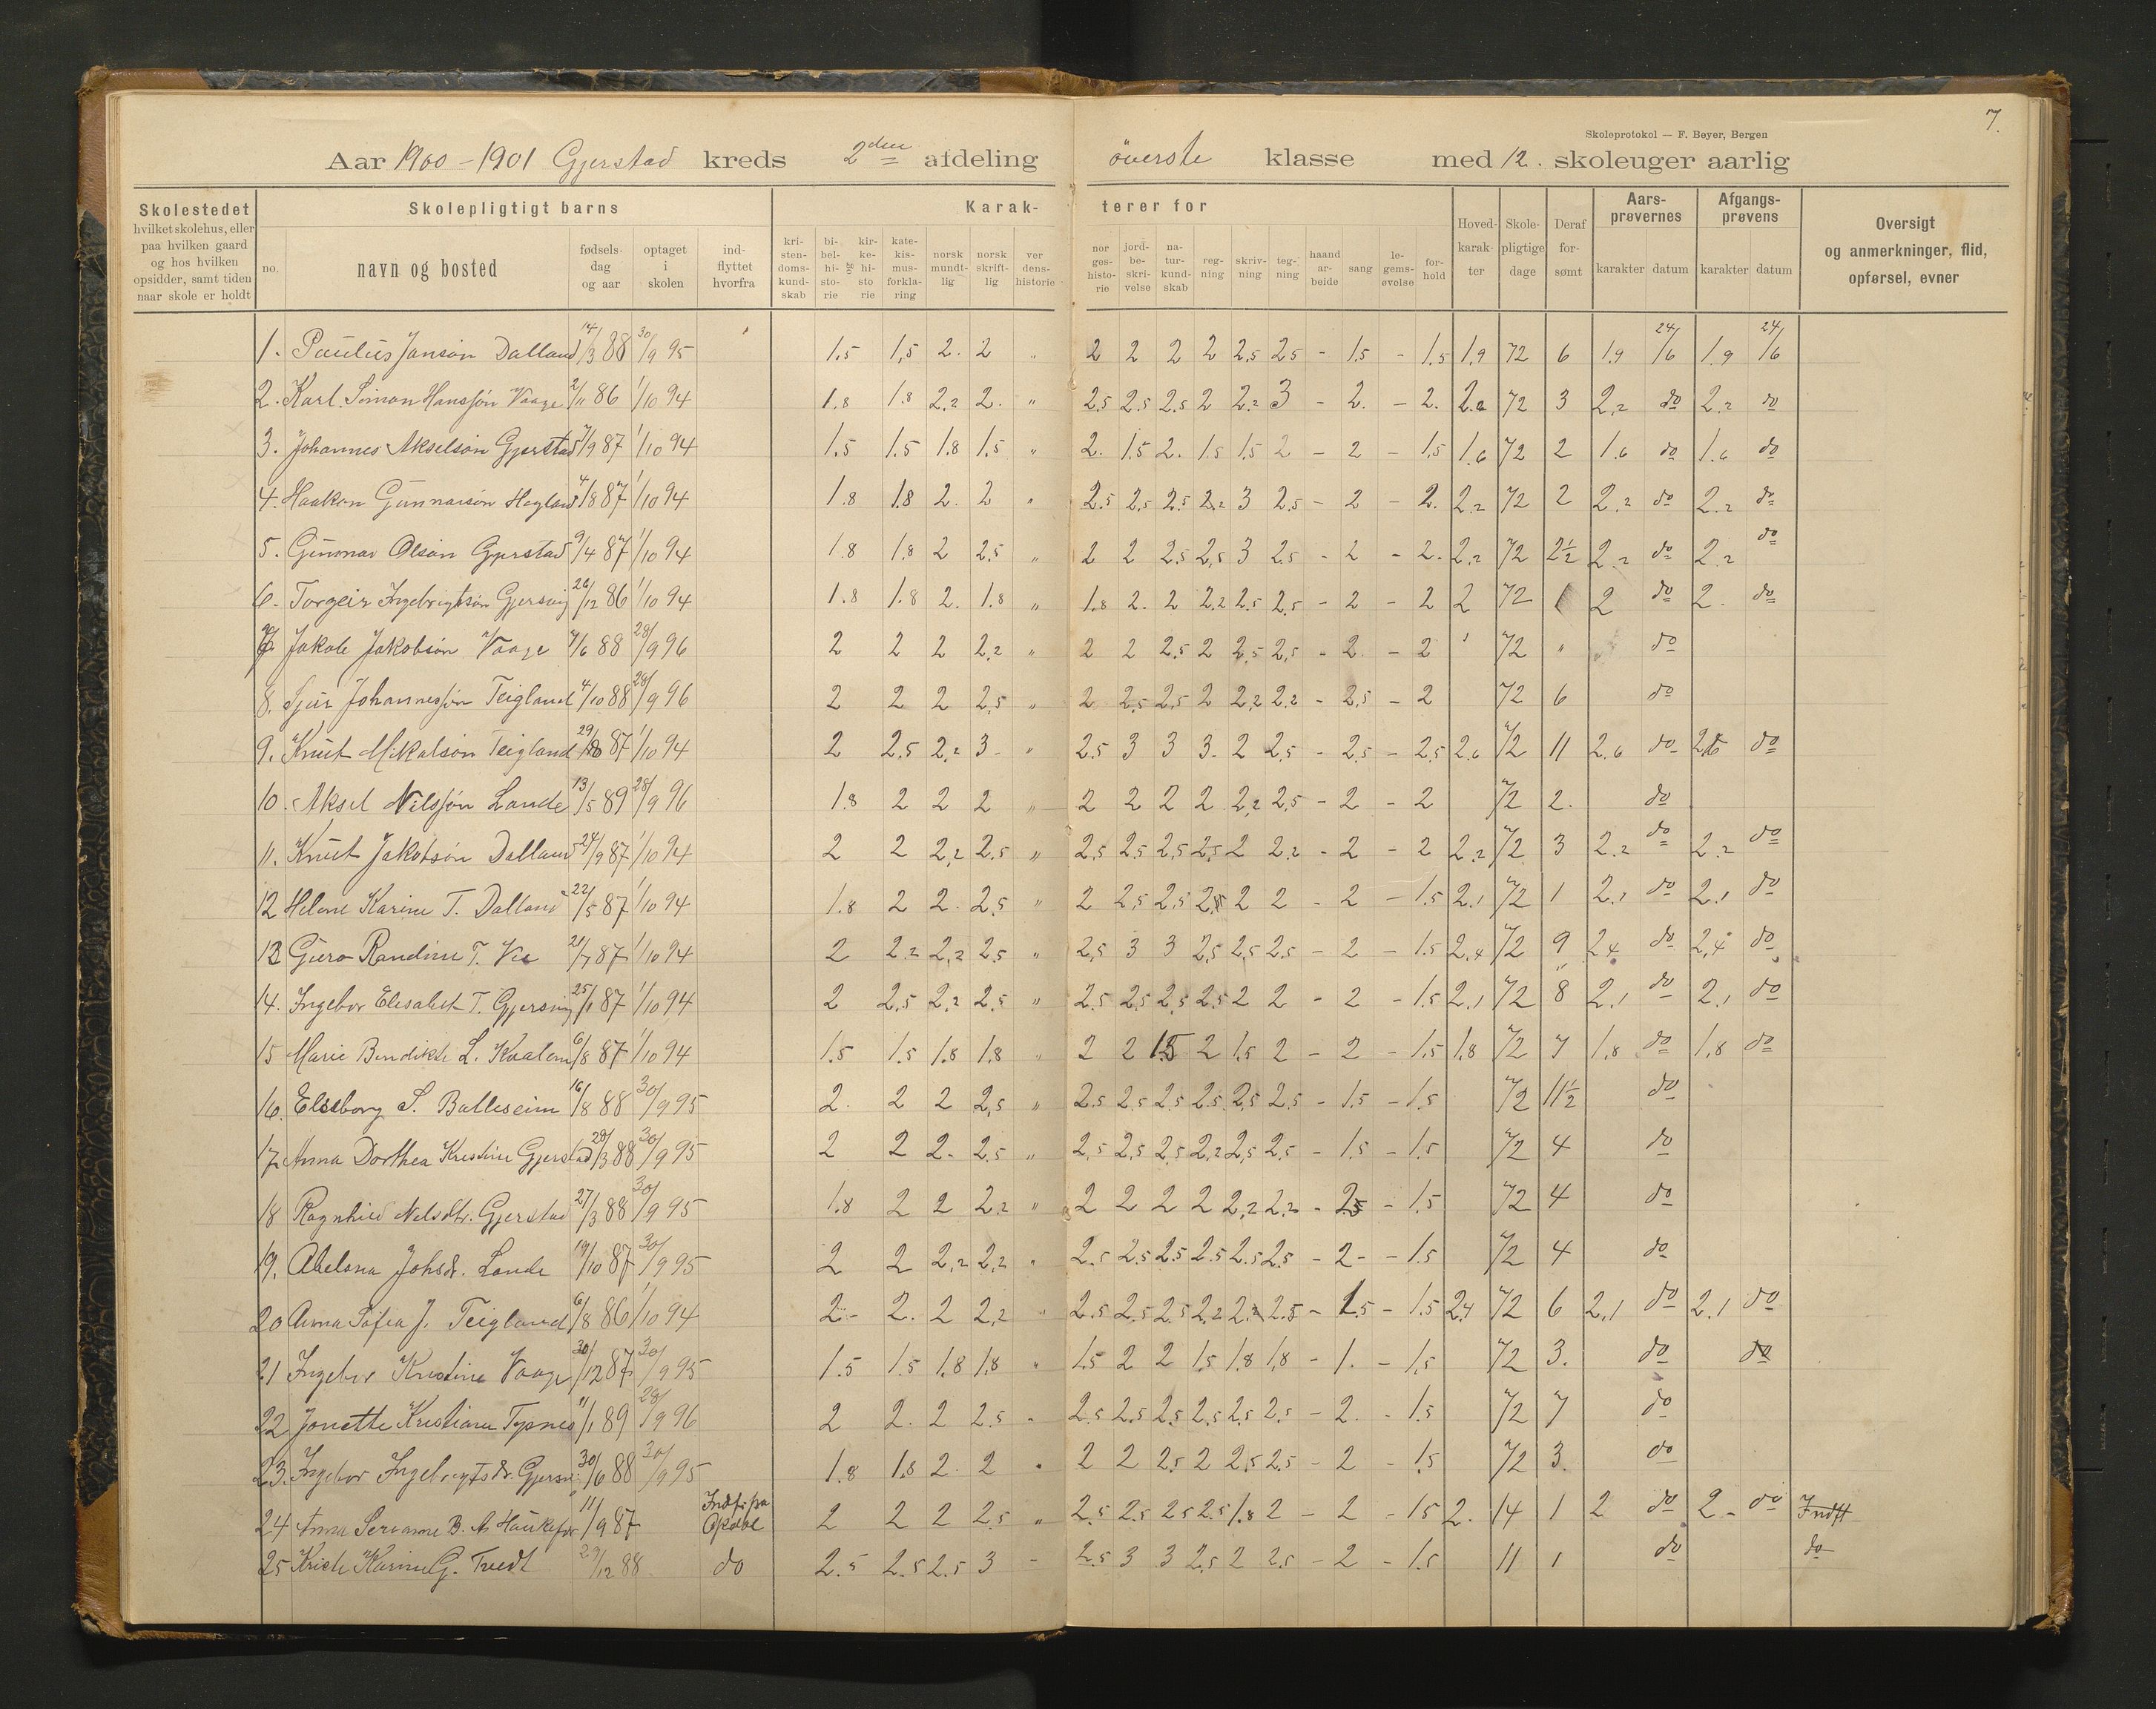 7.
Skoleprotokol — F. Beyer, Bergen
Aar 1900-1901 Gjerstad kreds 2den afdeling øverste klasse med 12. skoleuger aarlig
Skolestedet hvilket skolehus, eller paa hvilken gaard og hos hvilken opsidder, samt tiden naar skole er holdt
Skolepligtigt barns
no. navn og bosted fødsels-dag og aar optaget i skolen ind-flyttet hvorfra
Karak-terer for
kri-sten-doms-kund-skab bi-bel-hi-sto-rie kir-ke-hi-sto-rie kate-kis-mus-forkla-ring norsk mundt-lig norsk skrift-lig ver dens-historie nor ges-histo-rie jord-be-skri-velse na-tur-kund-skab reg-ning skriv-ning teg-ning haand ar-beide sang le-gems-øvelse for-hold
Hoved-karak-ter Skole-pligtige dage Deraf for-sømt Aars-prøvernes karakter datum Afgangs-prøvens karakter datum
Oversigt og anmerkninger, flid, opførsel, evner
1. Paulus Janson Dalland 14/3 88 30/9 95 1.5 1,5 2. 2 „ 2 2 2 2 2,5 2,5 - 1.5 - 1.5 1,9 72 6 1.9 24/6 1.9 24/6
2. Karl. Simon Hansson Vaage 2/11 86 1/10 94 1.8 1.8 2,2 2. „ 2.5 2.5 2.5 2 2.2 3 - 2. - 2. 2.2 72 3 2,2 do 2,2 do
3. Johannes Akselson Gjerstad 7/9 87 1/10 94 1.5 1.5 1.8 1.5 „ 2. 1.5 2. 1.5 1.5 2 - 2 - 1.5 1.6 72 2 1.6 do 1.6 do
4. Haakon Gunnarson Hegland 4/8 87 1/10 94 1.8 1.8 2. 2 „ 2.5 2,5 2,5 2,2 3 2,5 - 2 - 2. 2,2 72 2 2,2 do 2,2 do
5. Gunnar Olson Gjerstad 9/4 87 1/10 94 1.8 1.8 2 2,5 „ 2 2 2,5 2,5 3 2.5 - 2 - 2. 2,2 72 2½ 2,2 do 2,2 do
6. Torgeir Ingebrigtson Gjersvig 26/12 86 1/10 94 1.8 1.8 2. 1.8 „ 1.8 2. 2 2,2 2,5 2,5 - 2 - 2 2 72 1 2 do 2. do
7. Jakob Jakobson Vaage 7/6 88 28/9 96 2 2 2 2,2 „ 2 2 2,5 2 2,5 2,5 - 2 - 2 72 „ do
8. Sjur Johannesson Teigland 4/10 88 28/9 96 2 2 2 2,5 „ 2 2,5 2,5 2 2,2 2,2 - 2,5 - 2 72 6 do
9. Knut Mikalson Teigland 29/8 87 1/10 94 2 2.5 2,2 3 „ 2.5 3 3 3. 2 2,5 - 2,5 - 2,5 2.6 72 11 2.6 do 2,6 do
10. Aksel Nilsson Lande 13/5 89 28/9 96 1.8 2 2 2 „ 2 2 2 2 2,2 2,5 - 2 - 2 72 2. do
11. Knut Jakobson Dalland 24/9 87 1/10 94 2 2 2,2 2.5 „ 2,5 2.5 2,5 2,5 2 2.2 - 2 - 2 2,2 72 3 2.2 do 2,2 do
12 Helene Karine T. Dalland 22/5 87 1/10 94 1.8 2 2. 2,5 „ 2 2,5 2,5 2,5 2 2 - 2 - 1.5 2,1 72 1 2,1 do 2,1 do
13 Guro Randine T. Vee 21/7 87 1/10 94 2 2,2 2,2 2,5 „ 2,5 3 3 2,5 2,5 2.5 - 2 - 1.5 2,4 72 9 2,4 do 2,4 do
14. Ingebor Elisabet T. Gjersvig 25/1 87 1/10 94 2 2,5 2,2 2,5 „ 2.5 2,5 2,5 2,5 2 2 - 2 - 1.5 2,1 72 8 2,1 do 2,1 do
15 Marie Bendikte L. Kvalem 6/8 87 1/10 94 1.5 1.5 1.8 1.8 „ 2 2 1.5 2 1.5 2 - 2 - 1.5 1.8 72 7 1,8 do 1,8 do
16. Elseborg S. Balleseim 16/8 88 30/9 95 2. 2 2 2,5 „ 2.5 2.5 2,5 2.5 2,5 2,5 - 1.5 - 1.5 72 11½ do
17. Anna Dorthea Kristine Gjerstad 28/3 88 30/9 95 2 2 2. 2.5 „ 2,5 2,5 2,5 2,2 2,5 2,5 - 1.5 - 1.5 72 4 do
18 Ragnhild Nelsdtr. Gjerstad 27/3 88 30/9 95 1.8 2 2 2,2 „ 2 2 2 2 2,2 2,2 - 2,5 - 1.5 72 4 do
19. Abelona Johsdr. Lande 19/10 87 30/9 95 2 2 2,2 2,2 „ 2,5 2.5 2.5 2.5 2.5 2.5 - 2 - 1.5 72 4 do
20 Anna Sofia J. Teigland 6/8 86 1/10 94 2 2. 2 2,2 „ 2.5 2.5 2,5 2,2 2,2 2.5 - 1.5 - 1.5 2,1 72 6 2,1 do 2,1 do
21 Ingebor Kristine Vaage 30/12 87 30/9 95 1.5 1.5 1.8 1.8 „ 1.5 2 2 1.5 1.8 1,8 - 1. - 1.5 72 3. do do
22 Jonette Kristiane Typnes 11/1 89 28/9 96 2 2. 2 2.5 „ 2,5 2,5 2,5 2,5 2,5 2,5 - 2. - 1.5 72 7 do
23. Ingebor Ingebrigtsdr. Gjersvi 30/6 88 30/9 95 1.8 1.8 2. 2 „ 2 2 2,5 2 2,5 2.5 - 2 - 1.5 72 3. do
24 Anna Serianne B. A. 11/9 87 Indf. fra Opdal 2 2 2 2.5 „ 2.5 2.5 2.5 2.5 1.8 2 - 2 - 1.5 2. 14 1 2 do 2 do Indft
25 Kristi Karine G. Tvedt 29/12 88 do 2.5 2.5 2.5 3 - 2.5 3 3 2,5 2 2.5 - 2 - 1.5 11 1 do do